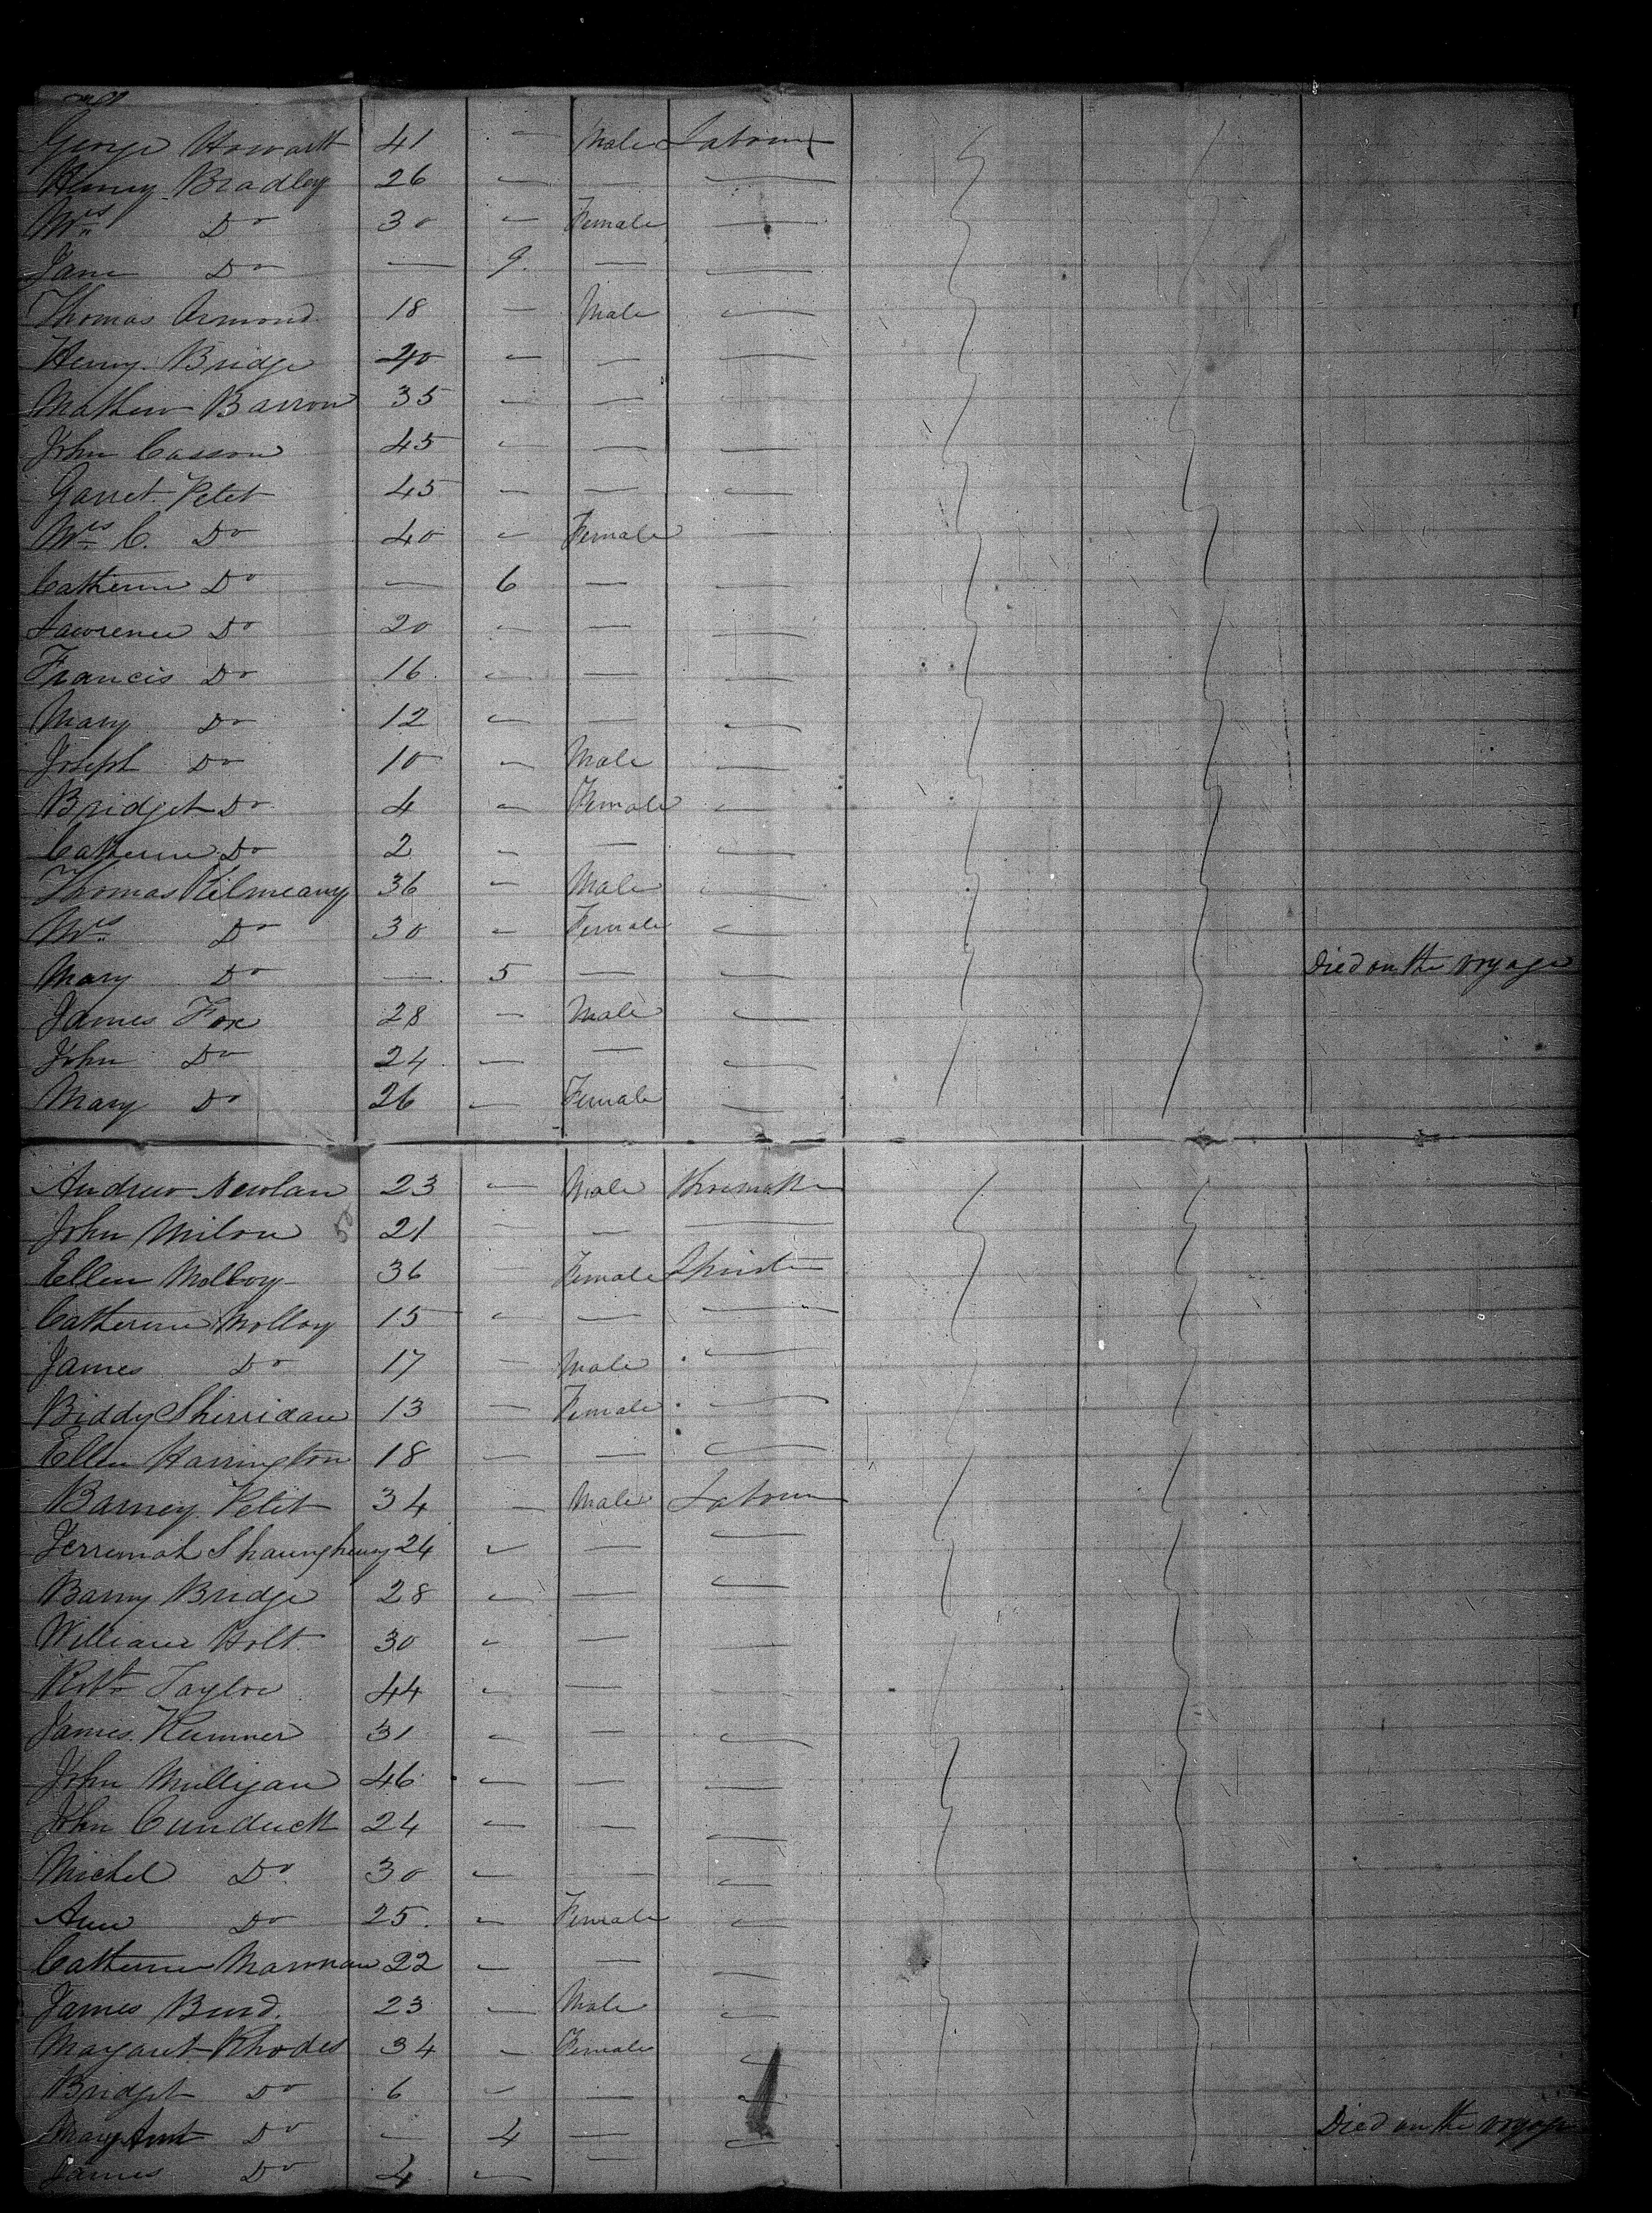 George Howarth 41 — Male Labourer
Henry Bradley 26 — — —
Mrs Do 30 — Female —
Jane Do — 9 — —
Thomas Armond 18 — Male —
Henry Bridge 40 — — —
Mathew Barron 35 — — —
John Casson 45 — — —
Garret Petit 45 — — —
Mrs C. Do 40 — Female —
Catherine Do — 6 — —
Lawrence Do 20 — — —
Francis Do 16 — — —
Mary Do 12 — — —
Joseph Do 10 — Male —
Bridget Do 4 — Female —
Catherine Do 2 — — —
Thomas Kilmeany 36 — Male —
Mrs Do 30 — Female —
Mary Do — 5 — — Died on the voyage
James Fox 28 — Male —
John Do 24 — — —
Mary Do 26 — Female —
Andrew Newlan 23 — Male
John Milon 21 — — —
Ellen Molloy 36 — Female Spinster
Catherine Molloy 15 — — —
James Do 17 — Male —
Biddy Sherridan 13 — Female —
Ellen Harrington 18 — — —
Barney Petit 34 — Male Labourer
Jerremah Shaunghnesy 24 — — —
Barny Bridge 28 — — —
William Holt 30 — — —
Robt Taylor 44 — — —
James Kumner 31 — — —
John Milligan 46 — — —
John Cunduck 24 — — —
Michel Do 30 — — —
Ann Do 25 — Female —
Catherine Marnnan 22 — — —
James Burd 23 — Male —
Margaret Rhodes 34 — Female —
Bridget Do 6 — — —
Mary Ann Do — 4 — — Died on the voyage
James Do 4 — —